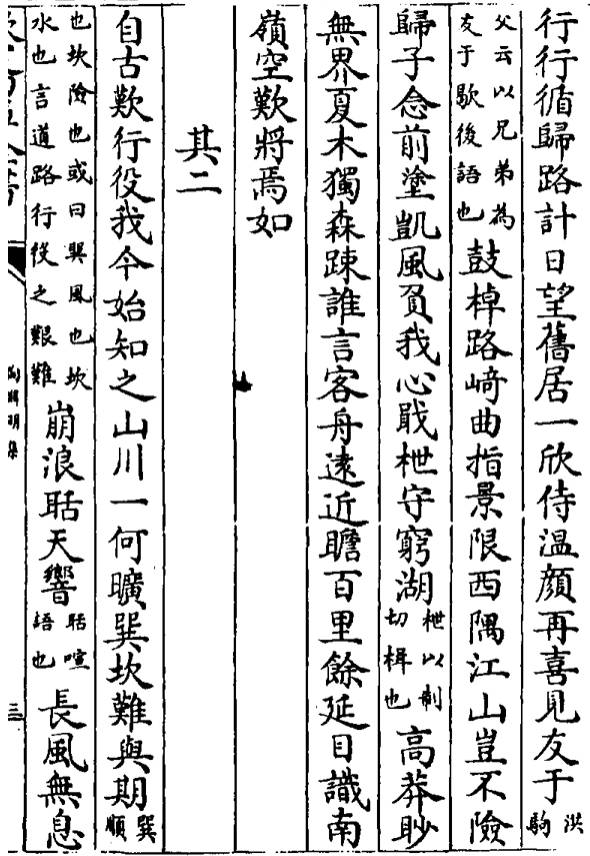 行行循歸路計日望舊居一欣侍温顔再喜見友于洪駒
父云以兄弟為友于歇後語也鼓棹路﨑曲指景限西隅江山豈不險
歸子念前塗凱風負我心戢枻守窮湖枻以制切楫也高莽眇
無界夏木獨森踈誰言客舟遠近瞻百里餘延目識南
嶺空歎將焉如
其二
自古歎行役我今始知之山川一何曠巽坎難與期巽順
也坎險也或曰巽風也坎水也言道路行役之艱難崩浪聒天響聒喧語也長風無息
陶淵明集
三